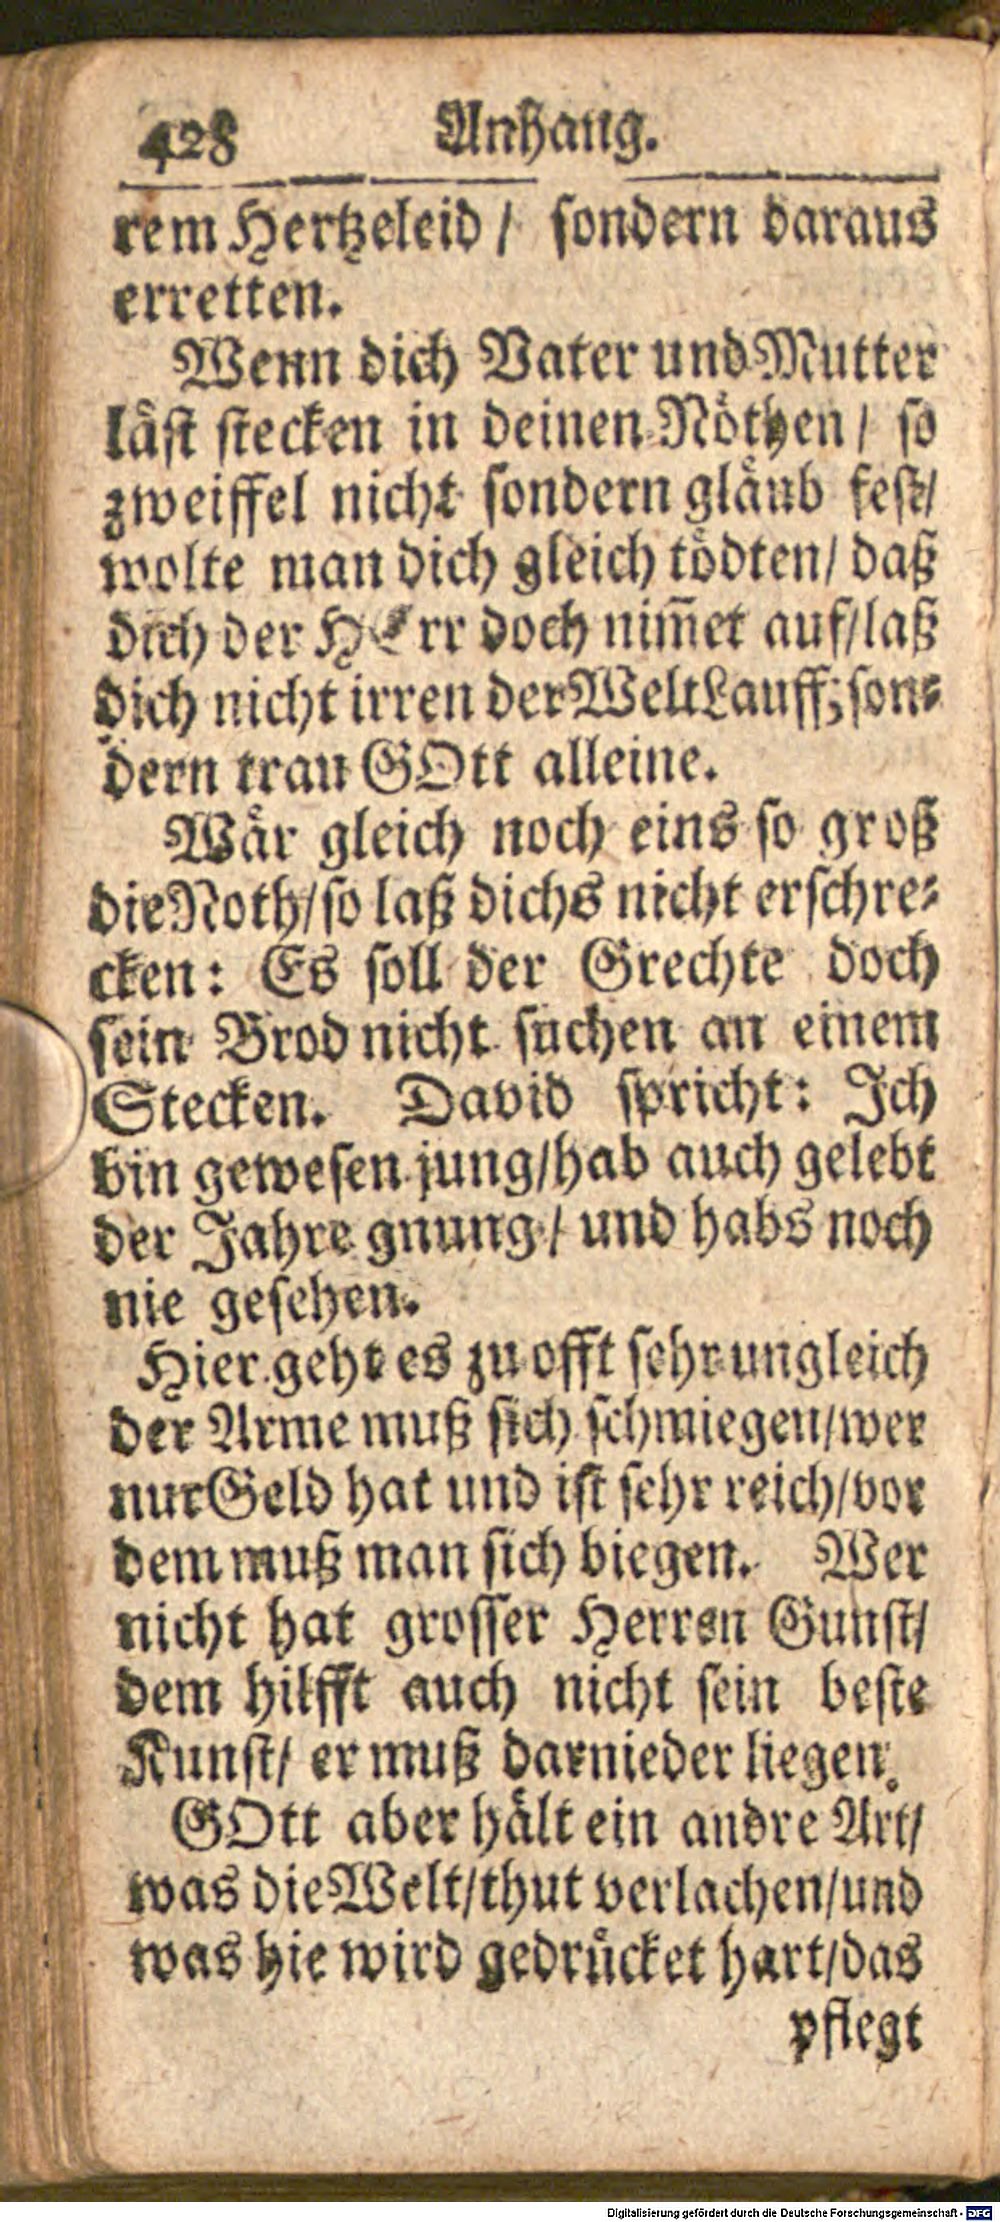 428 Anhang.
rem Hertzeleid / sondern daraus
erretten.
Wenn dich Vater und Mutter
läst stecken in deinen Nöthen / so
zweiffel nicht sondern gläub fest/
wolte man dich gleich tödten/ daß
dich der HErr doch nim̃et auf/laß
dich nicht irren der Welt Lauff; son-
dern trau GOtt alleine.
Wär gleich noch eins so groß
die Noth/so laß dichs nicht erschre-
cken: Es soll der Grechte doch
sein Brod nicht suchen an einem
Stecken. David spricht: Ich
bin gewesen jung/hab auch gelebt
der Jahre gnung / und habs noch
nie gesehen.
Hier geht es zu offt sehr ungleich
der Arme muß sich schmiegen/wer
nur Geld hat und ist sehr reich/vor
dem muß man sich biegen. Wer
nicht hat grosser Herren Gunst/
dem hilfft auch nicht sein beste
Kunst/ er muß darnieder liegen.
GOtt aber hält ein andre Art/
was die Welt/thut verlachen/und
was hie wird gedrücket hart/das
pflegt
Digitalisierung gefördert durch die Deutsche Forschungsgemeinschaft - DFG